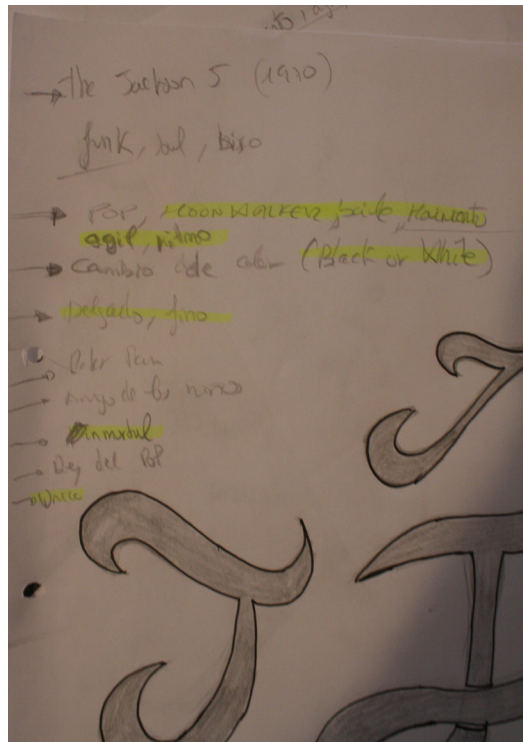 the Jackson 5 (1970)
funk, soul, disco
POP, MOONWALKER, baile, Movimiento
agil, ritmo
Cambio de color (Black or White)
Delgado, fino
Peter Pan
amigo de los
inmortal
Rey del POP
Unico